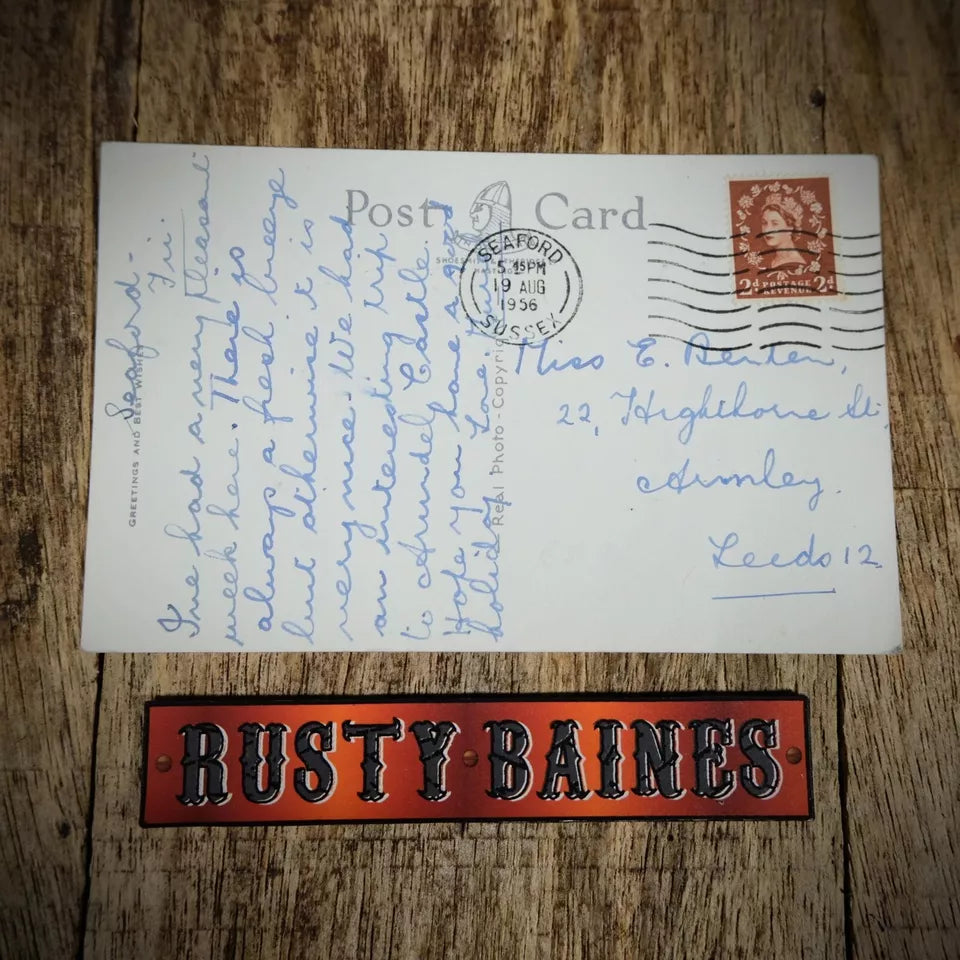 Post Card
GREETINGS AND BEST WISHES
Real Photo - Copyright
SEAFORD
5 15 PM
19 AUG
1956
SUSSEX
2d POSTAGE REVENUE 2d
Seaford -
Fri.
I've had a very pleasant
week here. There is
always a fresh breeze
but otherwise it is
very nice. We had
an interesting trip
to Arundel Castle.
Hope you have a good
holiday. Love
Miss E. Benten,
22, Highthorne St.
Armley.
Leeds 12
RUSTY BAINES